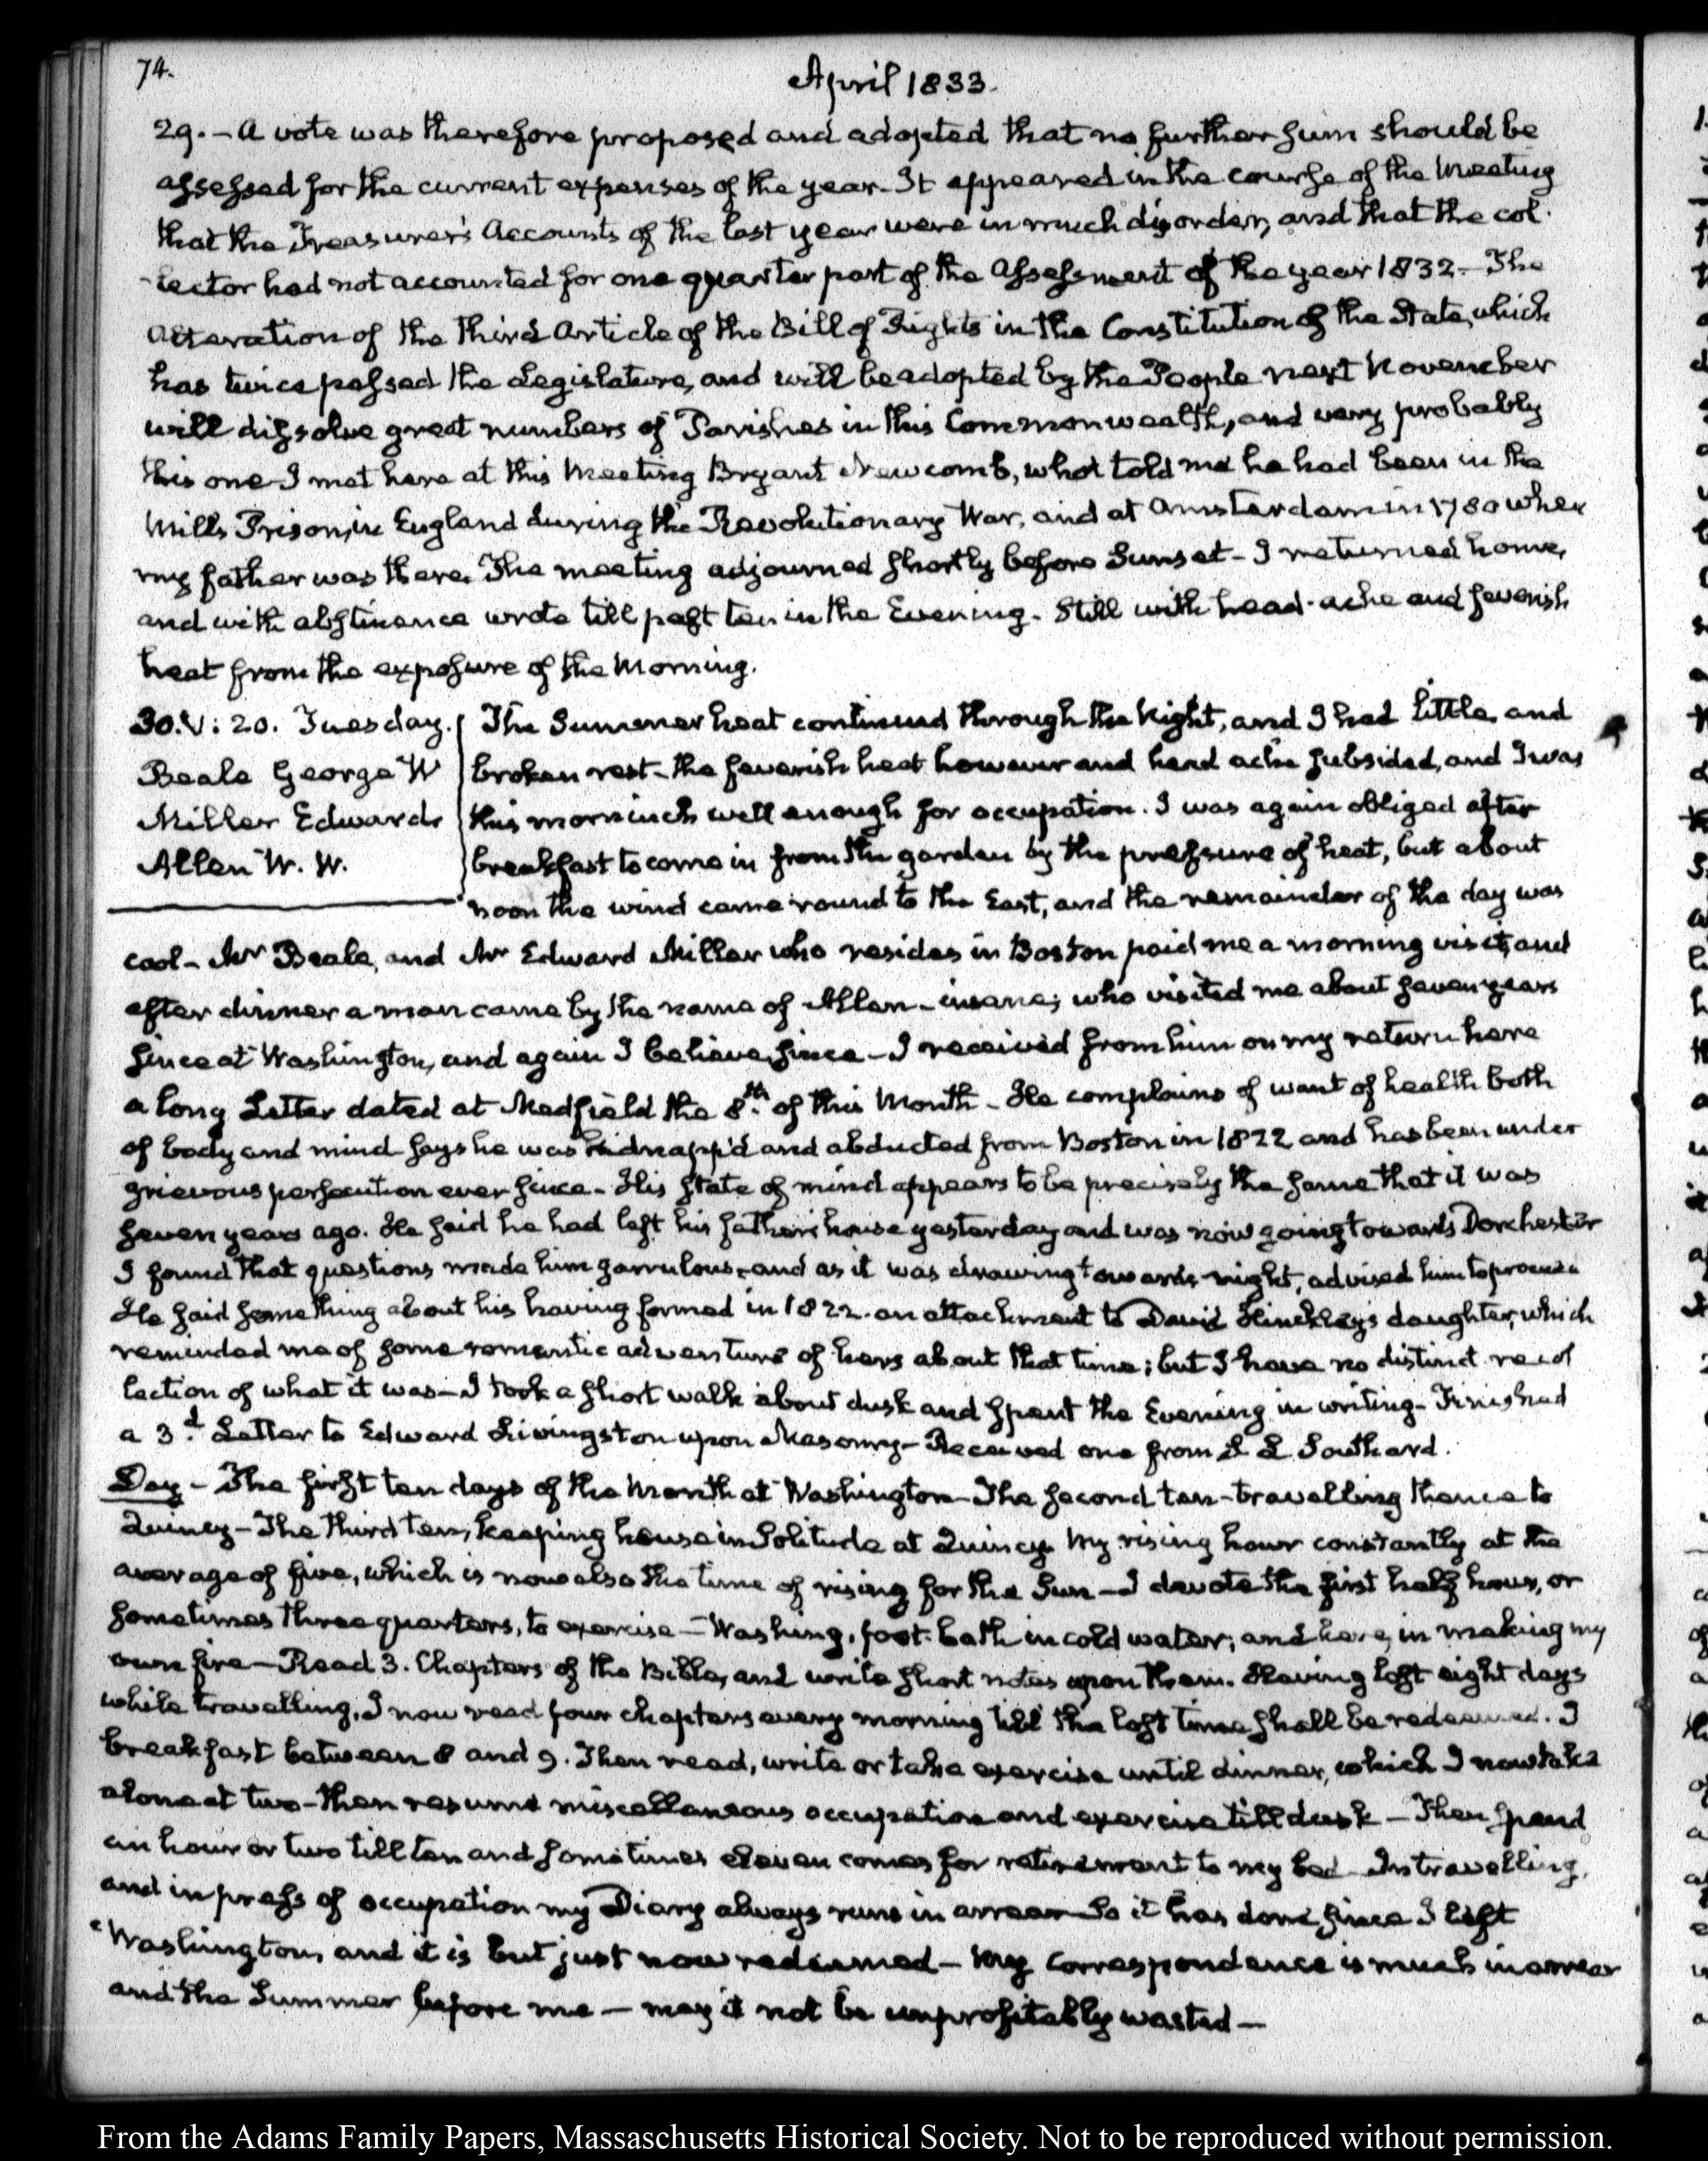 74.
April 1833.
29. - A vote was therefore proposed and adopted that no further sum should be
assessed for the current expenses of the year - It appeared in the course of the Meeting
that the Treasurer's Accounts of the last year were in much disorder, and that the col-
-lector had not accounted for one quarter part of the Assessment of the year 1832. - The
alteration of the third Article of the Bill of Rights in the Constitution of the State, which
has twice passed the Legislature, and will be adopted by the People next November
will dissolve great numbers of Parishes in this Commonwealth, and very probably
this one - I met here at this Meeting Bryant Newcomb, who told me he had been in the
Mills Prison, in England during the Revolutionary War, and at Amsterdam in 1780 when
my father was there. The meeting adjourned shortly before Sunset - I returned home,
and with abstinence wrote till past ten in the Evening. Still with head-ache and feverish
heat from the exposure of the Morning.
30. V: 20. Tuesday.
Beale George W
Miller Edward
Allen W. W.
The Summer heat continued through the Night, and I had little, and
broken rest - the feverish heat however and head ache subsided, and I was
this morning well enough for occupation. I was again obliged after
breakfast to come in from the garden by the pressure of heat, but about
noon the wind came round to the East, and the remainder of the day was
cool - Mr Beale, and Mr Edward Miller who resides in Boston paid me a morning visit, and
after dinner a man came by the name of Allen - insane; who visited me about seven years
since at Washington, and again I believe, since - I received from him on my return here
a long Letter dated at Medfield the 8th. of this Month - He complains of want of health both
of body and mind says he was kidnapp'd and abducted from Boston in 1822 and has been under
grievous persecution ever since - His state of mind appears to be precisely the same that it was
seven years ago. He said he had left his father's house yesterday and was now going towards Dorchester
I found that questions made him garrulous, and as it was drawing towards night, advised him to proceed
He said something about his having formed in 1822. an attachment to David Hinckley's daughter, which
reminded me of some romantic adventure of hers about that time; but I have no distinct recol
lection of what it was - I took a short walk about dusk and spent the Evening in writing - Finished
a 3d. Letter to Edward Livingston upon Masonry - Received one from S L Southard.
Day - The first ten days of the Month at Washington - The second ten - travelling thence to
Quincy - The third ten, keeping house in Solitude at Quincy. My rising hour constantly at the
average of five, which is now also the time of rising for the Sun - I devote the first half hour, or
sometimes three quarters, to exercise - Washing, foot-bath in cold water; and here, in making my
own fire - Read 3. Chapters of the Bible, and write short notes upon them. Having lost eight days
while travelling, I now read four chapters every morning till the lost time shall be redeemed. I
breakfast between 8 and 9. Then read, write or take exercise until dinner, which I now take
alone at two - then resume miscellaneous occupation and exercise till dusk - Then spend
an hour or two till ten and sometimes eleven comes for retirement to my bed. In travelling,
and in press of occupation my Diary always runs in arrear - So it has done since I left
Washington, and it is but just now redeemed - My correspondence is much in arrear
and the Summer before me - may it not be unprofitably wasted -
From the Adams Family Papers, Massachusetts Historical Society. Not to be reproduced without permission.